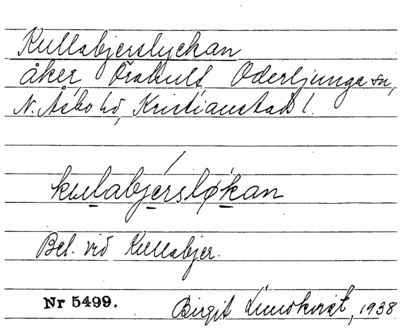 Kullabjerslyckan
åker, Örahult, Oderljunga sn,
N. Åsbo hd, Kristianstads l.
kulabjersløkan
Bel. vid Kullabjer.
Nr 5499.
Birgit Lindkvist, 1938